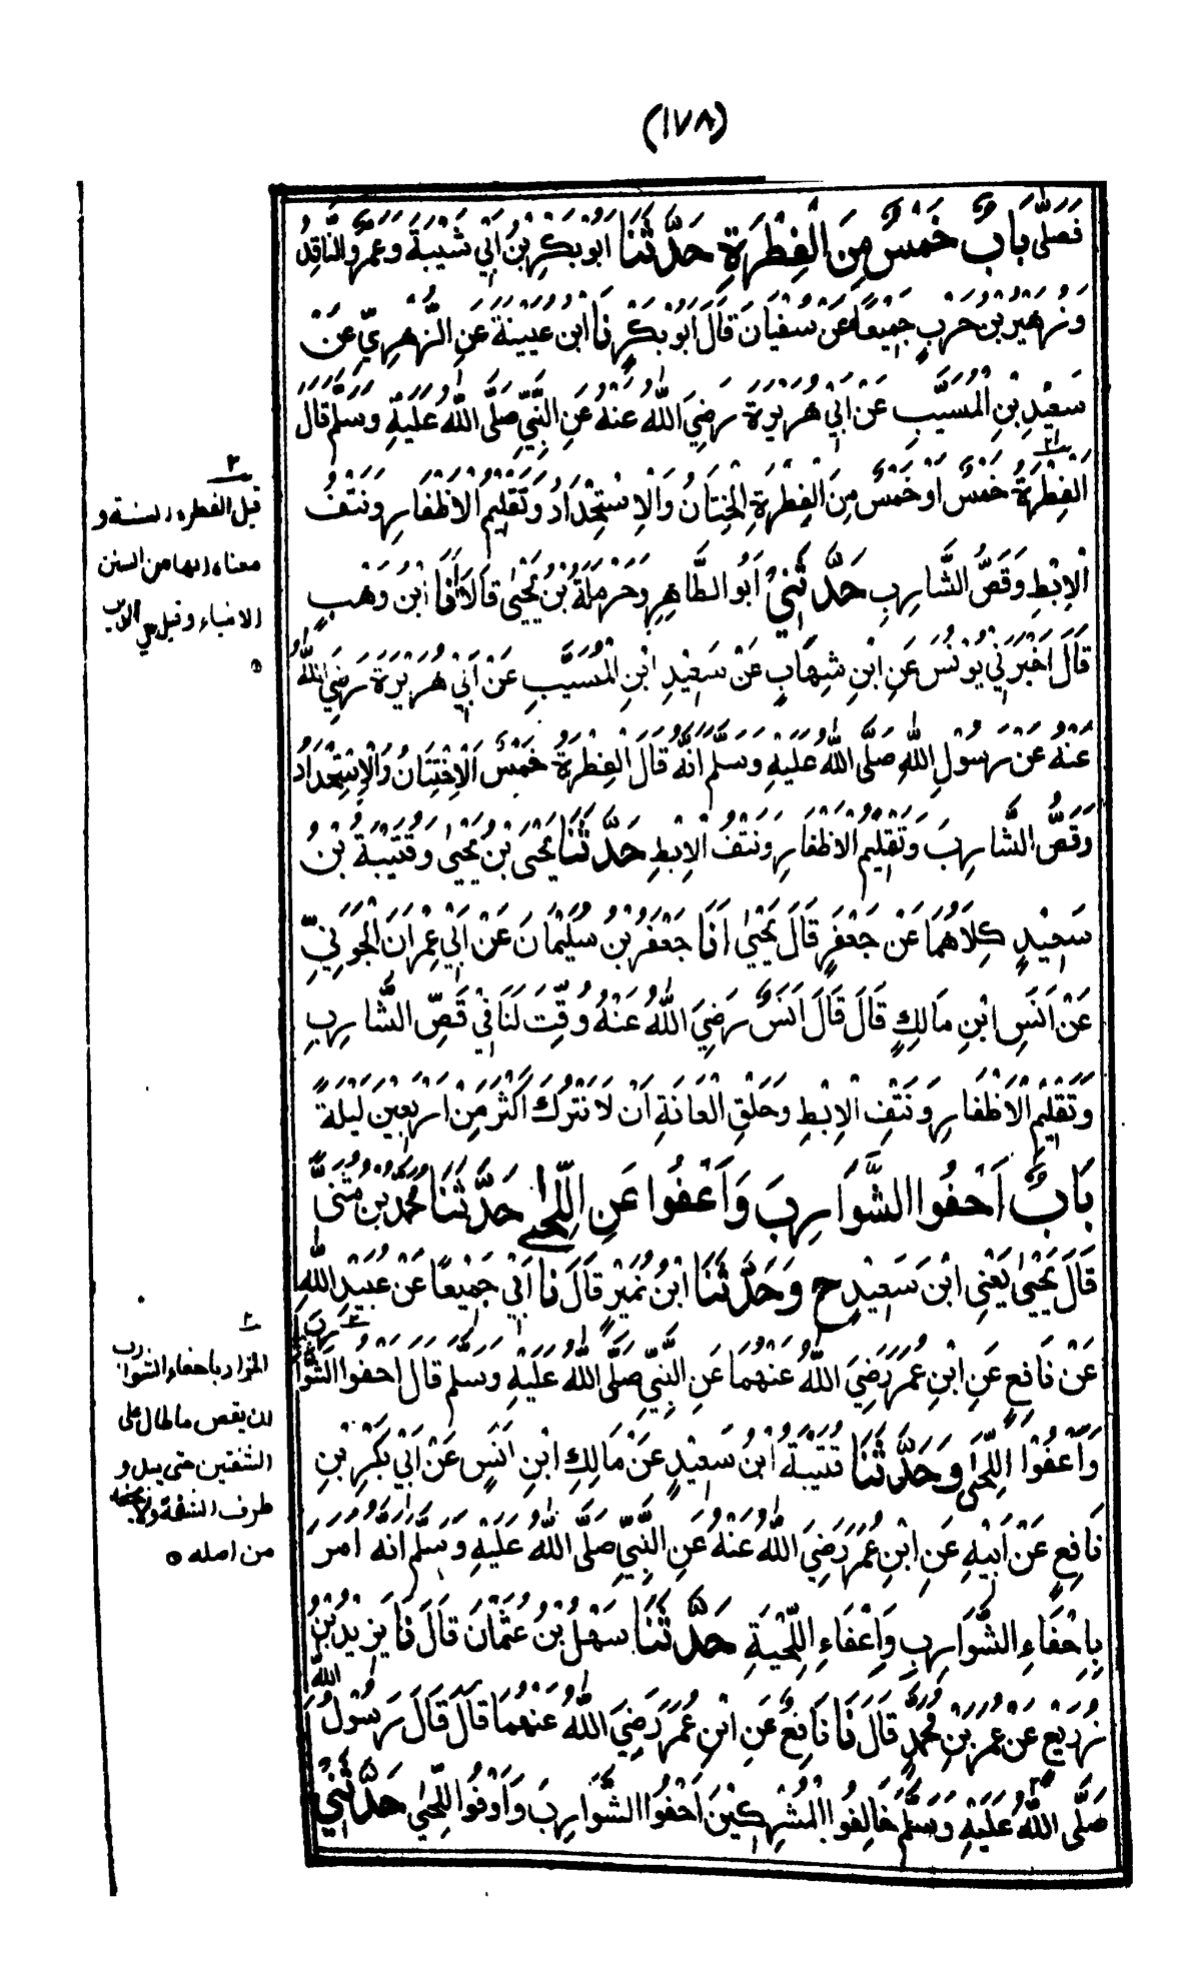 (١٧٨)
فَصَلّٰى بَابٌ خَمْسٌ مِنَ الْفِطْرَةِ حَدَّثَنَا اَبُوْ بَكْرِ بْنُ اَبِيْ شَيْبَةَ وَعَمْرٌو النَّاقِدُ
وَزُهَيْرُ بْنُ حَرْبٍ جَمِيْعًا عَنْ سُفْيَانَ قَالَ اَبُوْ بَكْرٍ نَا ابْنُ عُيَيْنَةَ عَنِ الزُّهْرِيِّ عَنْ
سَعِيْدِ بْنِ الْمُسَيَّبِ عَنْ اَبِيْ هُرَيْرَةَ رَضِيَ اللّٰهُ عَنْهُ عَنِ النَّبِيِّ صَلَّى اللّٰهُ عَلَيْهِ وَسَلَّمَ قَالَ
اَلْفِطْرَةُ خَمْسٌ اَوْ خَمْسٌ مِنَ الْفِطْرَةِ الْخِتَانُ وَالْاِسْتِحْدَادُ وَتَقْلِيْمُ الْاَظْفَارِ وَنَتْفُ
الْاِبْطِ وَقَصُّ الشَّارِبِ حَدَّثَنِيْ اَبُو الطَّاهِرِ وَحَرْمَلَةُ بْنُ يَحْيٰى قَالَا اَنَا ابْنُ وَهْبٍ
قَالَ اَخْبَرَنِيْ يُوْنُسُ عَنِ ابْنِ شِهَابٍ عَنْ سَعِيْدِ ابْنِ الْمُسَيَّبِ عَنْ اَبِيْ هُرَيْرَةَ رَضِيَ اللّٰهُ
عَنْهُ عَنْ رَسُوْلِ اللّٰهِ صَلَّى اللّٰهُ عَلَيْهِ وَسَلَّمَ اَنَّهُ قَالَ الْفِطْرَةُ خَمْسٌ اَلْاِخْتِتَانُ وَالْاِسْتِحْدَادُ
وَقَصُّ الشَّارِبِ وَتَقْلِيْمُ الْاَظْفَارِ وَنَتْفُ الْاِبْطِ حَدَّثَنَا يَحْيَى بْنُ يَحْيٰى وَقُتَيْبَةُ بْنُ
سَعِيْدٍ كِلَاهُمَا عَنْ جَعْفَرٍ قَالَ يَحْيٰى اَنَا جَعْفَرُ بْنُ سُلَيْمَانَ عَنْ اَبِيْ عِمْرَانَ الْجَوْنِيِّ
عَنْ اَنَسِ ابْنِ مَالِكٍ قَالَ قَالَ اَنَسٌ رَضِيَ اللّٰهُ عَنْهُ وُقِّتَ لَنَا فِيْ قَصِّ الشَّارِبِ
وَتَقْلِيْمِ الْاَظْفَارِ وَنَتْفِ الْاِبْطِ وَحَلْقِ الْعَانَةِ اَنْ لَا نَتْرُكَ اَكْثَرَ مِنْ اَرْبَعِيْنَ لَيْلَةً
بَابٌ اَحْفُوا الشَّوَارِبَ وَاَعْفُوا عَنِ اللِّحٰى حَدَّثَنَا مُحَمَّدُ بْنُ مُثَنّٰى
قَالَ يَحْيٰى يَعْنِي ابْنَ سَعِيْدٍ ح وَحَدَّثَنَا ابْنُ نُمَيْرٍ قَالَ نَا اَبِيْ جَمِيْعًا عَنْ عُبَيْدِ اللّٰهِ
عَنْ نَافِعٍ عَنِ ابْنِ عُمَرَ رَضِيَ اللّٰهُ عَنْهُمَا عَنِ النَّبِيِّ صَلَّى اللّٰهُ عَلَيْهِ وَسَلَّمَ قَالَ اَحْفُوا الشَّوَارِبَ
وَاَعْفُوْا اللِّحٰى وَحَدَّثَنَا قُتَيْبَةُ ابْنُ سَعِيْدٍ عَنْ مَالِكِ ابْنِ اَنَسٍ عَنْ اَبِيْ بَكْرِ بْنِ
نَافِعٍ عَنْ اَبِيْهِ عَنِ ابْنِ عُمَرَ رَضِيَ اللّٰهُ عَنْهُ عَنِ النَّبِيِّ صَلَّى اللّٰهُ عَلَيْهِ وَسَلَّمَ اَنَّهُ اَمَرَ
بِاِحْفَاءِ الشَّوَارِبِ وَاِعْفَاءِ اللِّحْيَةِ حَدَّثَنَا سَهْلُ بْنُ عُثْمَانَ قَالَ نَا يَزِيْدُ بْنُ
زُرَيْعٍ عَنْ عُمَرَ بْنِ مُحَمَّدٍ قَالَ نَا نَافِعٌ عَنِ ابْنِ عُمَرَ رَضِيَ اللّٰهُ عَنْهُمَا قَالَ قَالَ رَسُوْلُ اللّٰهِ
صَلَّى اللّٰهُ عَلَيْهِ وَسَلَّمَ خَالِفُوا الْمُشْرِكِيْنَ اَحْفُوا الشَّوَارِبَ وَاَوْفُوا اللِّحٰى حَدَّثَنِيْ
٢
قيل الفطرة السنة و
معناه انها من سنن
الانبياء وقيل هي الدين
٢
المراد باحفاء الشوارب
ان يقص ما طال على
الشفتين حتى يبدو
طرف الشفة ولا يحفه
من اصله